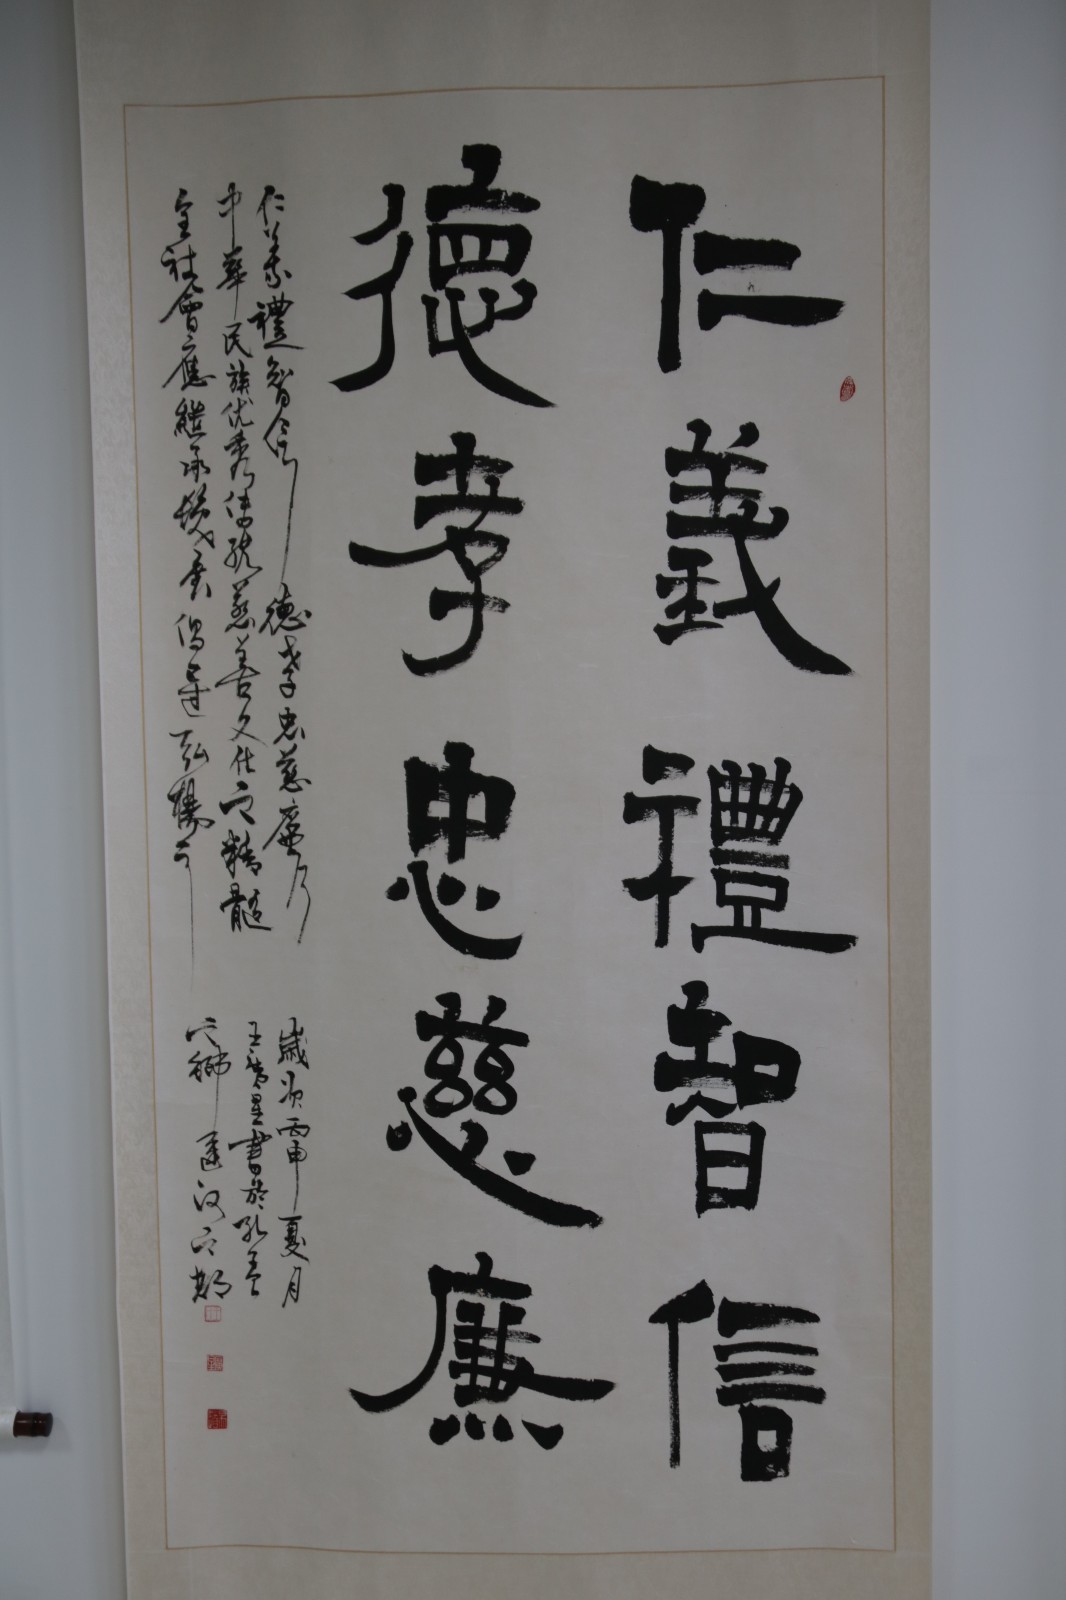 仁義禮智信
德孝忠慈廉
仁義禮智信德孝忠慈廉乃
中華民族优秀传统慈善文化之精髓
全社會應繼承發
弘揚
歲次丙申夏月
王 星書於孔孟
之鄉運河之都